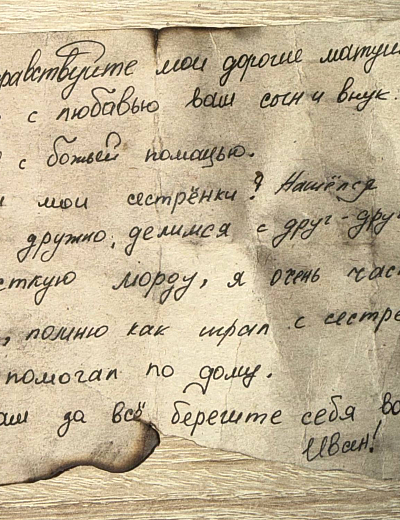 равствуйте мои дорогие матуш
с любавью ваш сын и внук.
с божьей помащью.
и мои сестрёнки? Нашёлся
дружно, делимся с друг-друг
сткую морду, я очень част
, помню как играл с сестре
помогал по дому.
ам за всё берегите себя ва
Иван!